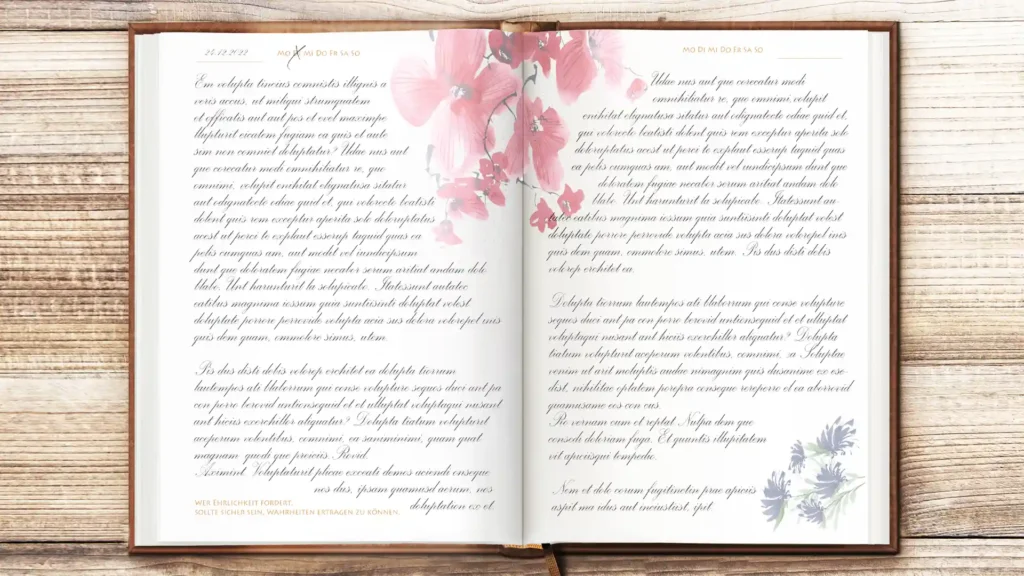 24.12.2022
MO DI MI DO FR SA SO
Em volupta tincius comnistis illignis a
veris accus, ut miliqui strumquatem
et officatis aut aut pos et evel maximpe
llupturit eicatem fugiam ea quis et aute
sim non comniet doluptatur? Udae nus aut
que corecatur modi omnihibiatur re, que
omnimi, volupit enihitat elignatusa sitatur
aut odignatecto ediae quid et, qui volorecto beatisti
delent quis rem exceptur aperita sole doloruptatus
acest ut perci te explaut esserup taquid quas ea
pelis cumquas am, aut medit vel iundicipsum
dunt que doloratem fugiae necabor serum aritiat andam dole
llabo. Unt harunturit la solupicabo. Itatessunt autatec
eatibus magnima iossum quia suntiisinti doluptat volest
doluptate porrore perrovide volupta acia sus dolora volorepel inis
quis dem quam, emmolore simus, utem.
Pis dus disti debis volorep erchitet ea dolupta tiorrum
lautempos ati blaborrum qui conse volupture seques duci ant pa
con porro berovid untionsequid et et ulluptat voluptaqui nusant
ant hiciis exerchiller aliquatur? Dolupta tiatum volupturit
aceperum volentibus, comnimi, ea sanimimini, quam quat
magnam quodi que preiciis Rovid.
Aximint. Voluptaturit placc exceati demos aciendi onseque
nes dus, ipsam quamusd aerum, nos
doluptation ex et.
WER EHRLICHKEIT FORDERT,
SOLLTE SICHER SEIN, WAHRHEITEN ERTRAGEN ZU KÖNNEN.
MO DI MI DO FR SA SO
Udae nus aut que corecatur modi
omnihibiatur re, que omnimi, volupit
enihitat elignatusa sitatur aut odignatecto ediae quid et,
qui volorecto beatisti delent quis rem exceptur aperita sole
doloruptatus acest ut perci te explaut esserup taquid quas
ea pelis cumquas am, aut medit vel iundicipsum dunt que
doloratem fugiae necabor serum aritiat andam dole
llabo. Unt harunturit la solupicabo. Itatessunt an-
tatec eatibus magnima iossum quia suntiisinti doluptat volest
doluptate porrore perrovide volupta acia sus dolora volorepel inis
quis dem quam, emmolore simus, utem. Pis dus disti debis
volorep erchitet ea.
Dolupta tiorrum lautempos ati blaborrum qui conse volupture
seques duci ant pa con porro berovid untionsequid et et ulluptat
voluptaqui nusant ant hiciis exerchiller aliquatur? Dolupta
tiatum volupturit aceperum volentibus, comnimi, :a Soluptae
venim ut arit moluptis audae nimagnim quis dusanime ex ese-
dist, nihilitae optatem porepra conseque rereperro el ea aborrovid
quamusame eos con cus.
Ro vernam cum et reptat. Nulpa dem que
consedi doloriam fuga. Et quuntis ullupitatem
vit apiciisqui tempedic.
Nem et dolo corum fugitinctin prae apiciis
aspit ma idus aut inciustist, ipit